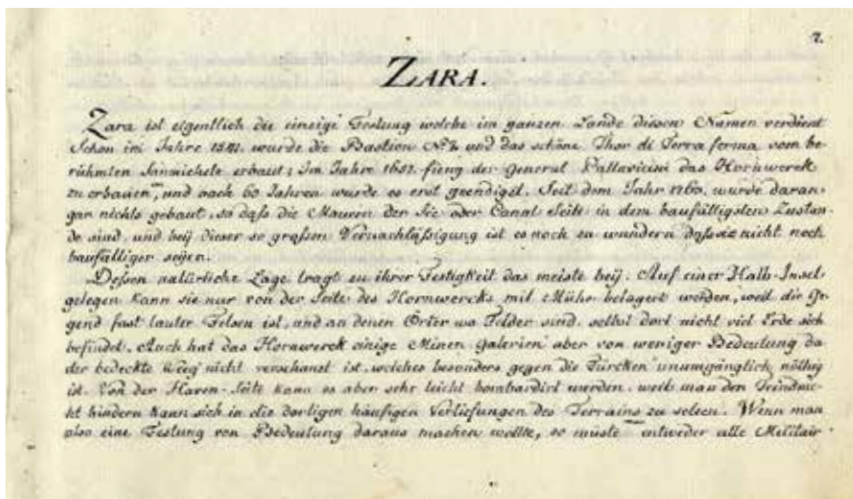 7.
ZARA.
Zara ist eigentlich die einzige Festung welche im ganzen Lande diesen Namen verdient
Schon im Jahre wurde die Bastion und das schöne Thor di Terra ferma vom be-
rühmten Sanmichele erbaut; Im Jahre fieng der General Pallavicini das Hornwerck
zu erbauen, und nach 60 Jahren wurde es erst geendigt. Seit dem Jahr 1760. wurde daran
gar nichts gebaut, so daß die Mauren der See oder Canal Seite in dem baufälligsten Zustan-
de sind, und beÿ dieser so großen Vernachläßigung ist es noch zu wundern daß sie nicht noch
baufälliger seÿen.
Dessen natürliche Lage tragt zu ihrer Festigkeit das meiste beÿ. Auf einer Halb-Insel
gelegen kann sie nur von der Seite des Hornwercks mit Mühe belagert werden, weil die Ge-
gend fast lauter Felsen ist, und an denen Örter wo Felder sind, selbst dort nicht viel Erde sich
befindet. Auch hat das Hornwerck einige Minen Galerien aber von weniger Bedeutung da
der bedeckte Weg nicht verschanzt ist, welches besonders gegen die Türcken unumgänglich nöthig
ist. Von der Haven-Seite kann es aber sehr leicht bombardirt werden, weil man den Feind nic-
ht hindern kann sich in die dortigen häufigen Vertiefungen des Terrains zu setzen. Wenn man
also eine Festung von Bedeutung daraus machen wollte, so müste entweder alle Militair